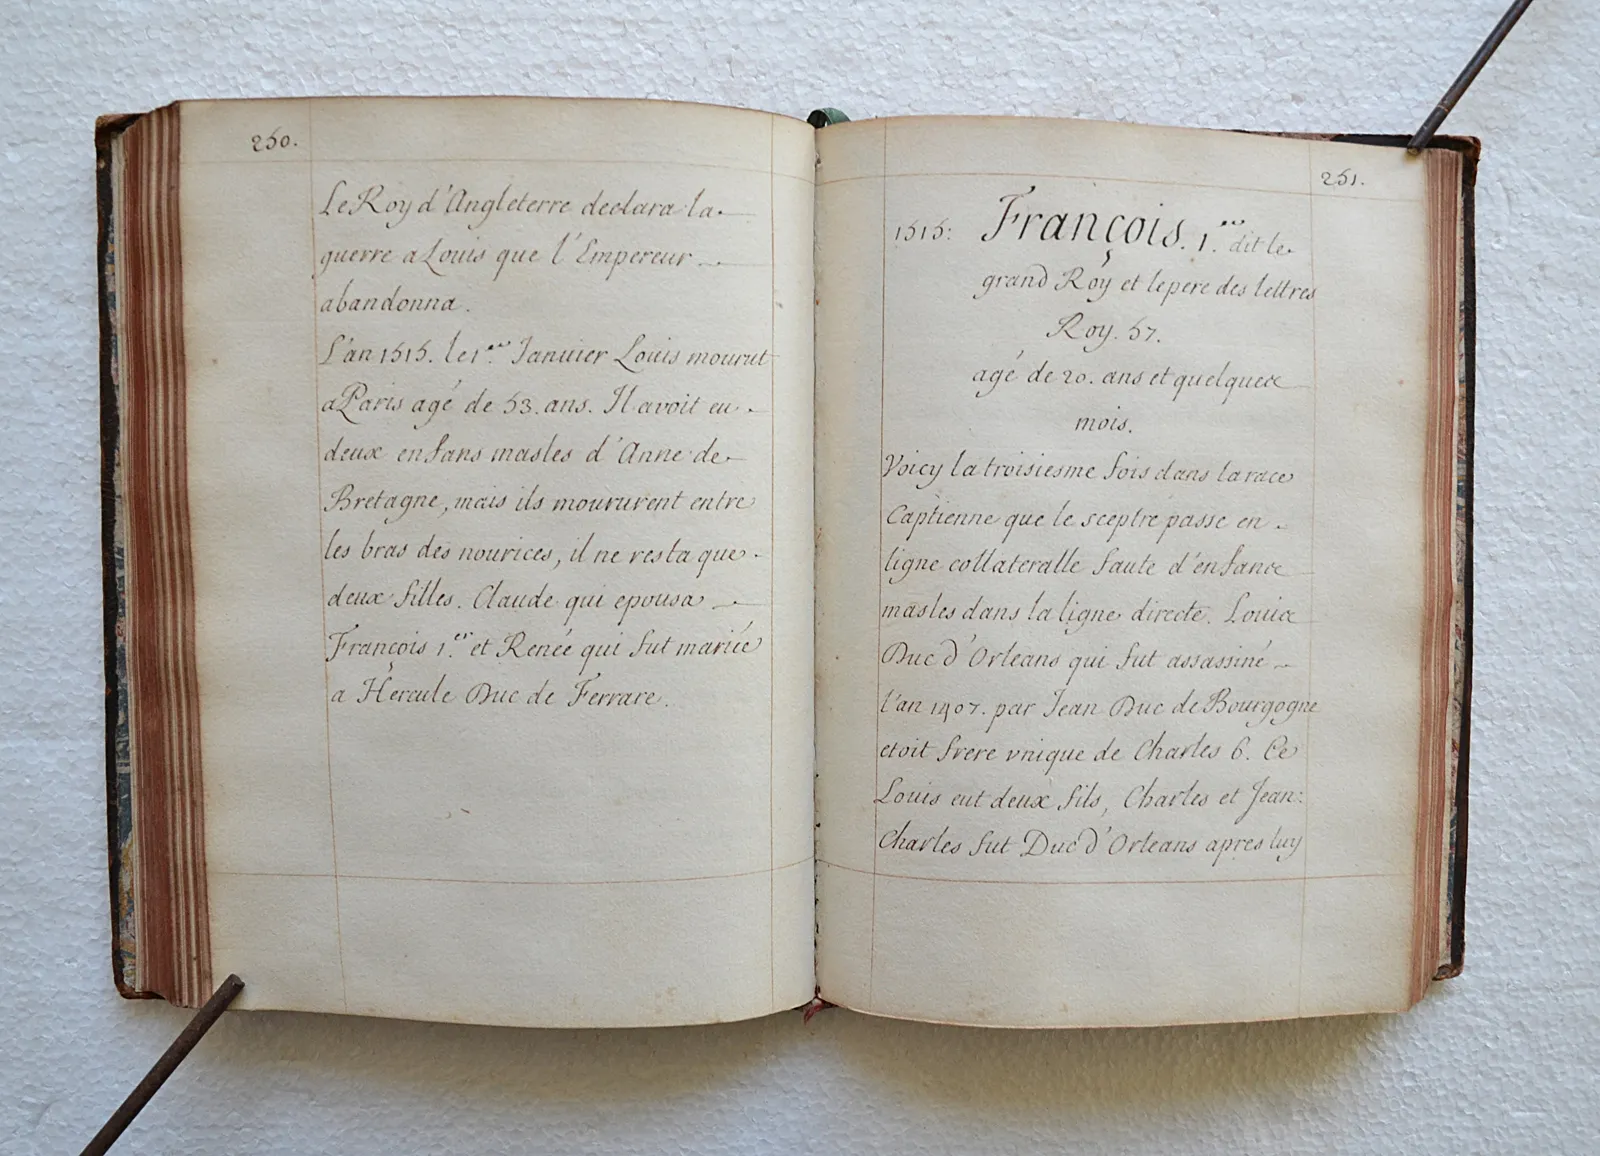 250.
Le Roy d'Angleterre declara la
guerre a Louis que l'Empereur
abandonna.
L'an 1515. le 1.er Januier Louis mourut
a Paris agé de 53. ans. Il avoit eu
deux enfans masles d'Anne de
Bretagne, mais ils moururent entre
les bras des nourices, il ne resta que
deux filles. Claude qui epousa
François 1.er et Renée qui fut mariée
a Hercule Duc de Ferrare.
251.
1515: François. 1.er dit le
grand Roy et le pere des lettres
Roy. 57.
agé de 20. ans et quelques
mois.
Voicy la troisiesme fois dans la race
Captienne que le sceptre passe en
ligne collateralle faute d'enfans
masles dans la ligne directe. Louis
Duc d'Orleans qui fut assassiné
l'an 1407. par Jean Duc de Bourgogne
etoit frere vnique de Charles 6. Ce
Louis eut deux fils, Charles et Jean:
Charles fut Duc d'Orleans apres luy